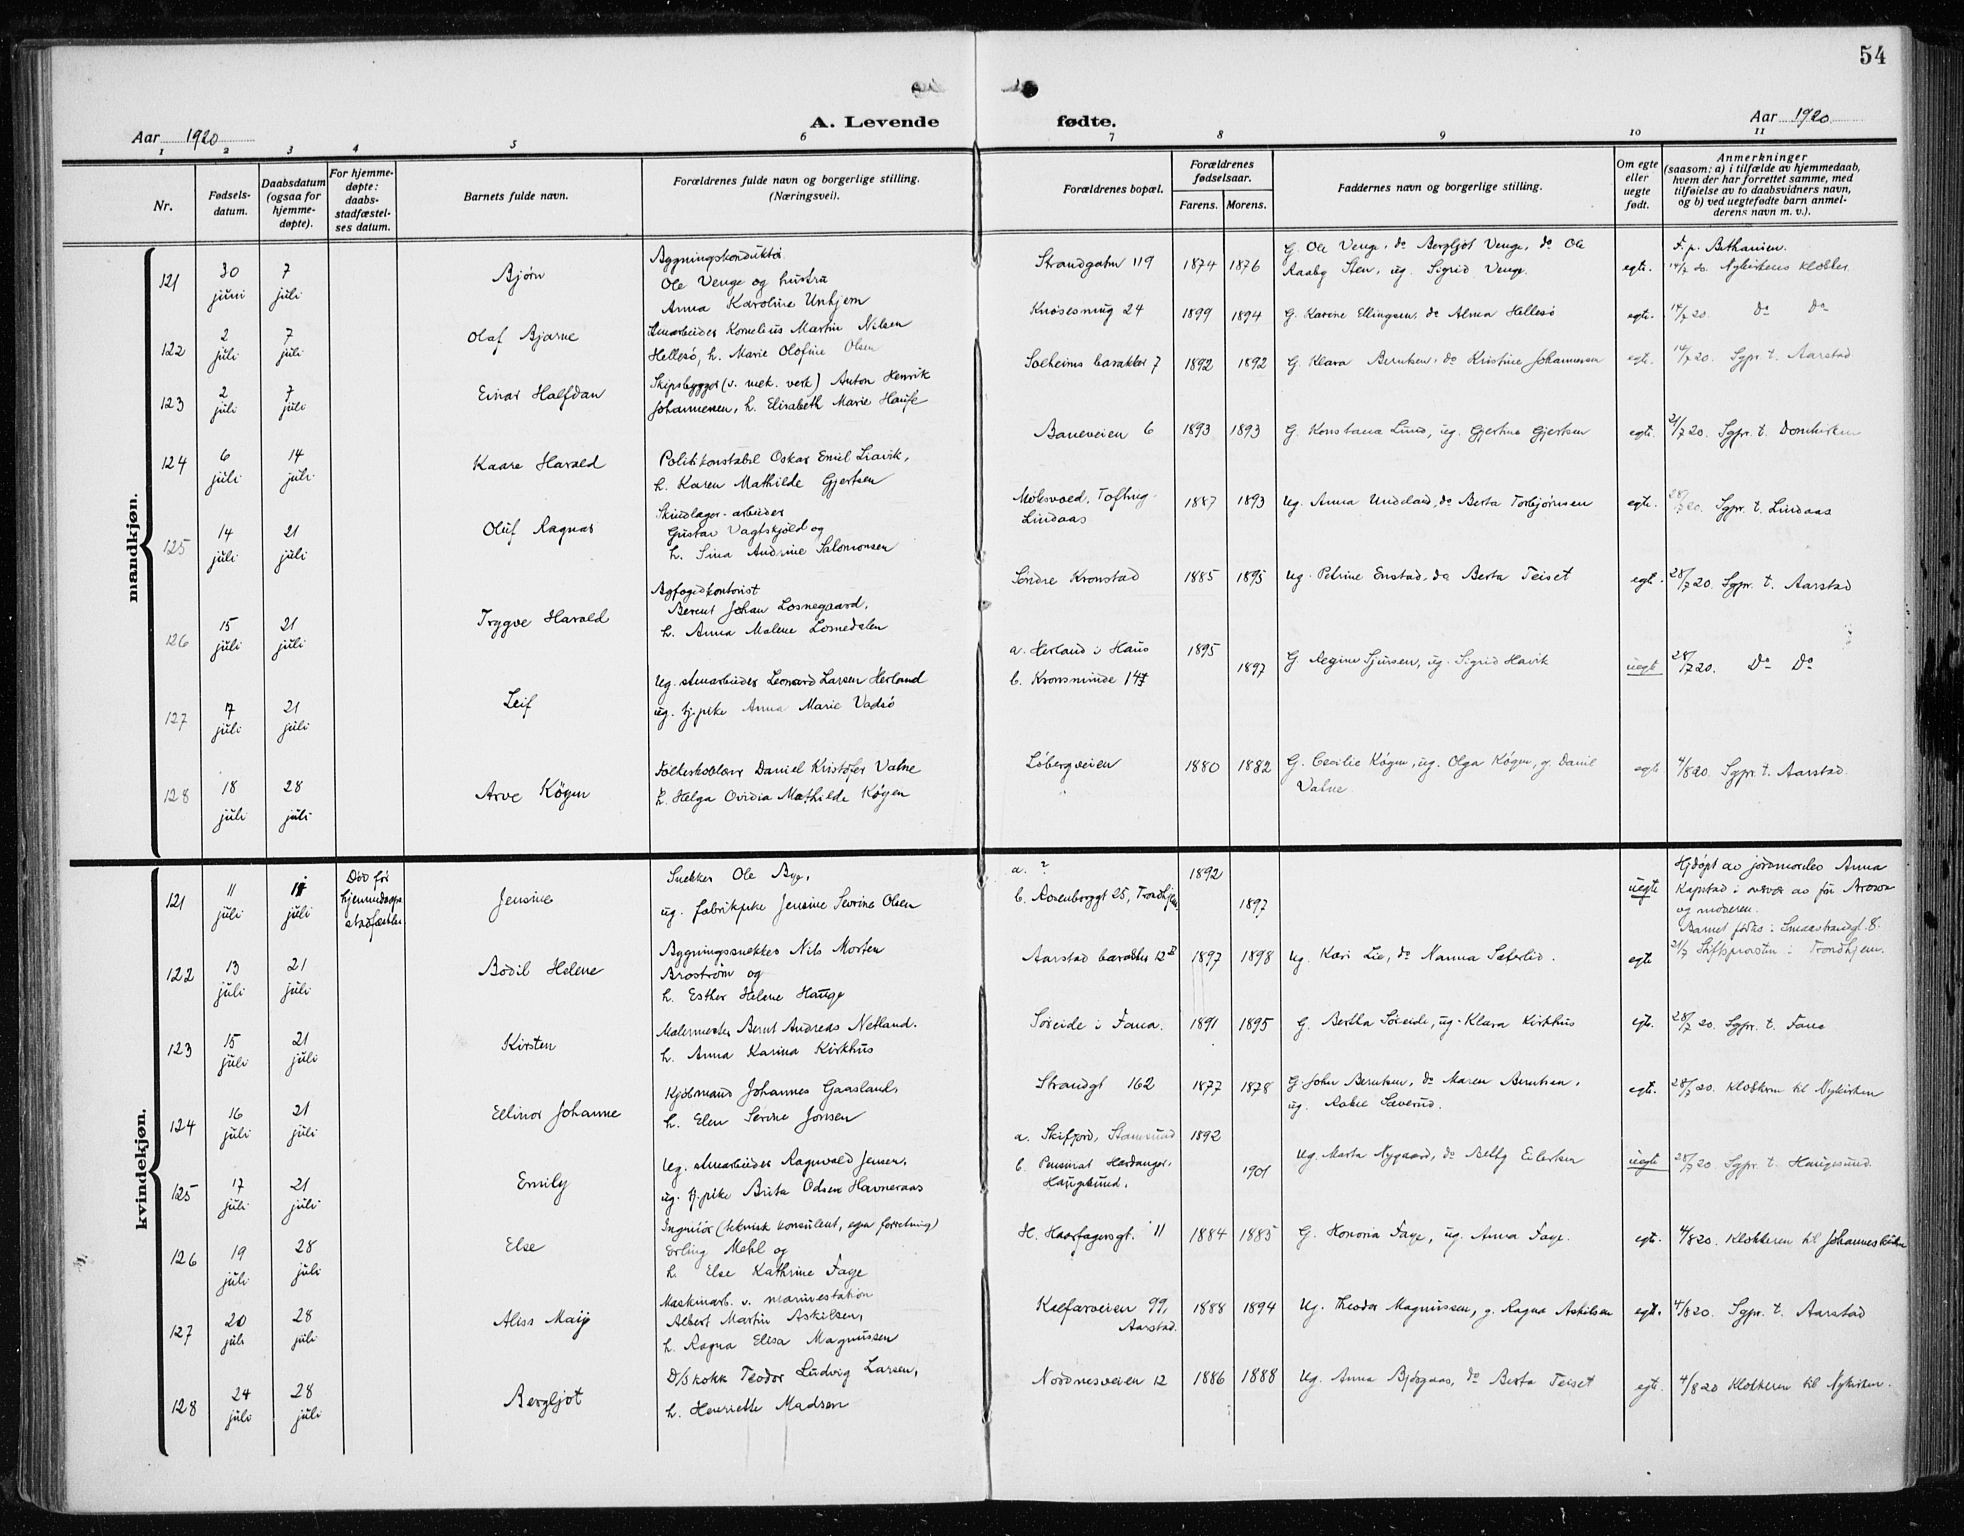 54
A. Levende fødte.
Aar 1920
Aar 1920
1 2 3 4 5 6 7 8 9 10 11
Nr.
Fødsels-
datum.
Daabsdatum
(ogsaa for
hjemme-
døpte).
For hjemme-
døpte:
daabs-
stadfæstel-
ses datum.
Barnets fulde navn.
Forældrenes fulde navn og borgerlige stilling.
(Næringsvei).
Forældrenes bopæl.
Forældrenes
fødselsaar.
Farens. Morens.
Faddernes navn og borgerlige stilling.
Om egte
eller
uegte
født.
Anmerkninger
(saasom: a) i tilfælde av hjemmedaab,
hvem der har forrettet samme, med
tilføielse av to daabsvidners navn,
og b) ved uegtefødte barn anmel-
derens navn m. v.).
mandkjøn.
121
30
juni
7
juli
Bjørn
Bygningskonduktø
Ole Venge og hustru
Anna Karoline Unhjem
Strandgatn 119
1874 1876
G. Ole Venge, do Bergljot Venge, do Ole
Raaby Sten, ug. Sigrid Venge.
egte.
F. p. Bethanien.
14/7 20. Nykirkens klokker.
122
2
juli
7
juli
Olaf Bjarne
Kornelius Martin Nilsen
Hellesø, h. Marie Olofine Olsen
Knøsesmug 24
1899 1894
G. Karine Ellingsen, do Alma Hellesø
egte.
14/7 20. Do Do
123
2
juli
7
juli
Einar Halfdan
Skipsbygger (v. mek. verk) Anton Henrik
Johannessen, h. Elisabeth Marie Haufe
Solheims barakker 7
1892 1892
G. Klara Berntsen, do Kristine Johannessen
egte.
14/7 20. Sgpr. t. Aarstad
124
6
juli
14
juli
Kaare Harald
Politikonstabel Oskar Emil Liavik,
h. Karen Mathilde Gjertsen
Baneveien 6
1893 1893
G. Konstana Lund, ug. Gjertine Gjertsen
egte.
21/7 20. Sgpr. t. Domkirken
125
14
juli
21
juli
Oluf Ragnar
Skindlager-arbeider
Gustav Vagtskjold og
h. Sina Andrine Salomonsen
Lindaas
1887 1893
Ug. Anna Undeland, do Berta Torbjørnsen
egte.
28/7 20. Sgpr. t. Lindaas
126
15
juli
21
juli
Trygve Harald
Byfogdkontorist
Berent Johan Losnegaard,
h. Anna Malene Losnedalen
Søndre Kronstad
1885 1895
Ug. Petrine Enstad, do Berta Teiset
egte.
28/7 20. Sgpr. t. Aarstad
127
7
juli
21
juli
Leif
Ug. Leonard Larsen Herland
ug. tj.pike Anna Marie Vadsø
a. Herland i Haus
b. Kronsminde 14
1895
1897
G. Regine Sjursen, ug. Sigrid Havik
uegte
28/7 20. Do Do
128
18
juli
28
juli
Arve Køgen
Folkeskolelærer Daniel Kristofer Vatne
h. Helga Ovidia Mathilde Køgen
Løbergveien
1880 1882
G. Cecilie Køgen, ug. Olga Køgen, g. Daniel
Vatne.
egte
4/8 20. Sgpr. t. Aarstad.
kvindekjøn.
121
11
juli
11
juli
Død før
hjemmedaaps
stadfæstelsen
Jensine
Snekker Ole Bye,
ug. fabrikpike Jensine Severine Olsen
a. ?
b. Rosenborggt 25, Trondhjem
1892
1897
uegte
Hjdøpt av jordmorder Anna
Kapstad i nærvær av frk
og moderen.
Barnet fødtes i Smaastrandgt. 8.
21/7 Stiftsprosten i Trondhjem.
122
13
juli
21
juli
Bodil Helene
Bygningssnekker Nils Morten
Brostrøm og
h. Esther Helene Hauge
Aarstad barakker 12
1897 1898
Ug. Kari Lie, do Nanna Sæterlid.
egte
123
15
juli
21
juli
Kirsten
Malermester Bernt Andreas Netland.
h. Anna Karina Kirkhus
Søreide i Fana.
1891 1895
G. Bertha Søreide, ug. Klara Kirkhus
egte.
28/7 20. Sgpr. t. Fana
124
16
juli
21
juli
Ellinor Johanne
Kjøbmand Johannes Gaasland,
h. Elen Serine Jonsen
Strandgt 162
1877 1878
G. John Berntsen, do Maren Berntsen,
ug. Rakel Sæverud.
egte.
28/7 20. Klokkeren til Nykirken
125
17
juli
21
juli
Emily
Ug. Ragnvald Jensen,
ug. tj.pike Brita Odsen Havneraas
a. Skifjord, Stamsund
b. Pensinat Hardanger,
Haugesund.
1892
1901
Ug. Marta Nygaard, do Betty Eilertsen
uegte
28/7 20. Sgpr. t. Haugesund.
126
19
juli
28
juli
Else
Ingeniør (teknisk konsulent, egen forretning)
Erling Mehl og
h. Else Kathrine Faye
H. Haarfagersgt. 11
1884 1885
G. Honoria Faye, ug. Anna Faye.
egte.
4/8 20. Klokkeren til Johanneskirken
127
20
juli
28
juli
Aliss Maiy
Maskinarb. v. marinestation
Albert Martin Askilsen,
h. Ragna Elisa Magnussen
Kalfarveien 99,
Aarstad.
1888 1894
Ug. Theodor Magnussen, g. Ragna Askilsen
egte.
4/8 20. Sgpr. t. Aarstad
128
24
juli
28
juli
Bergljot
D/Skokk Teodor Ludvig Larsen,
h. Henriette Madsen
Nordnesveien 12
1886 1888
Ug. Anna Bjørgaas, do Berta Teiset
egte.
4/8 20 Klokkeren til Nykirken.